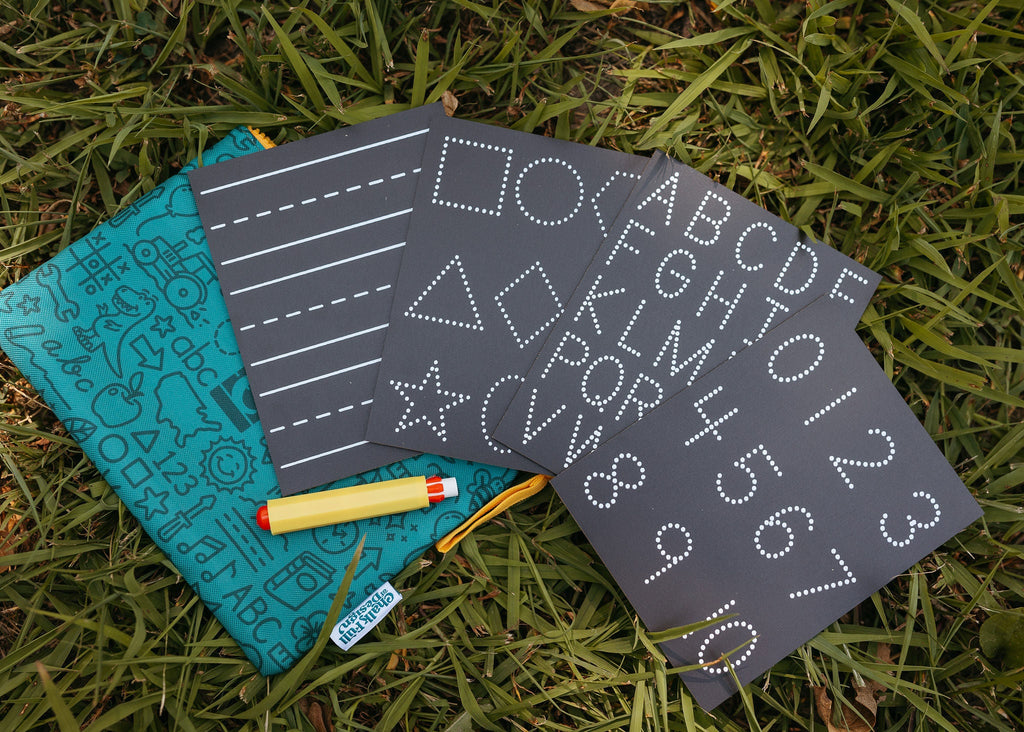 A B C D E
F G H I
K L M
P Q R
V W
0 1 2 3
4 5 6 7
8 9 10
abc
abc
abc
123
ABC
Chalk Full
of Design